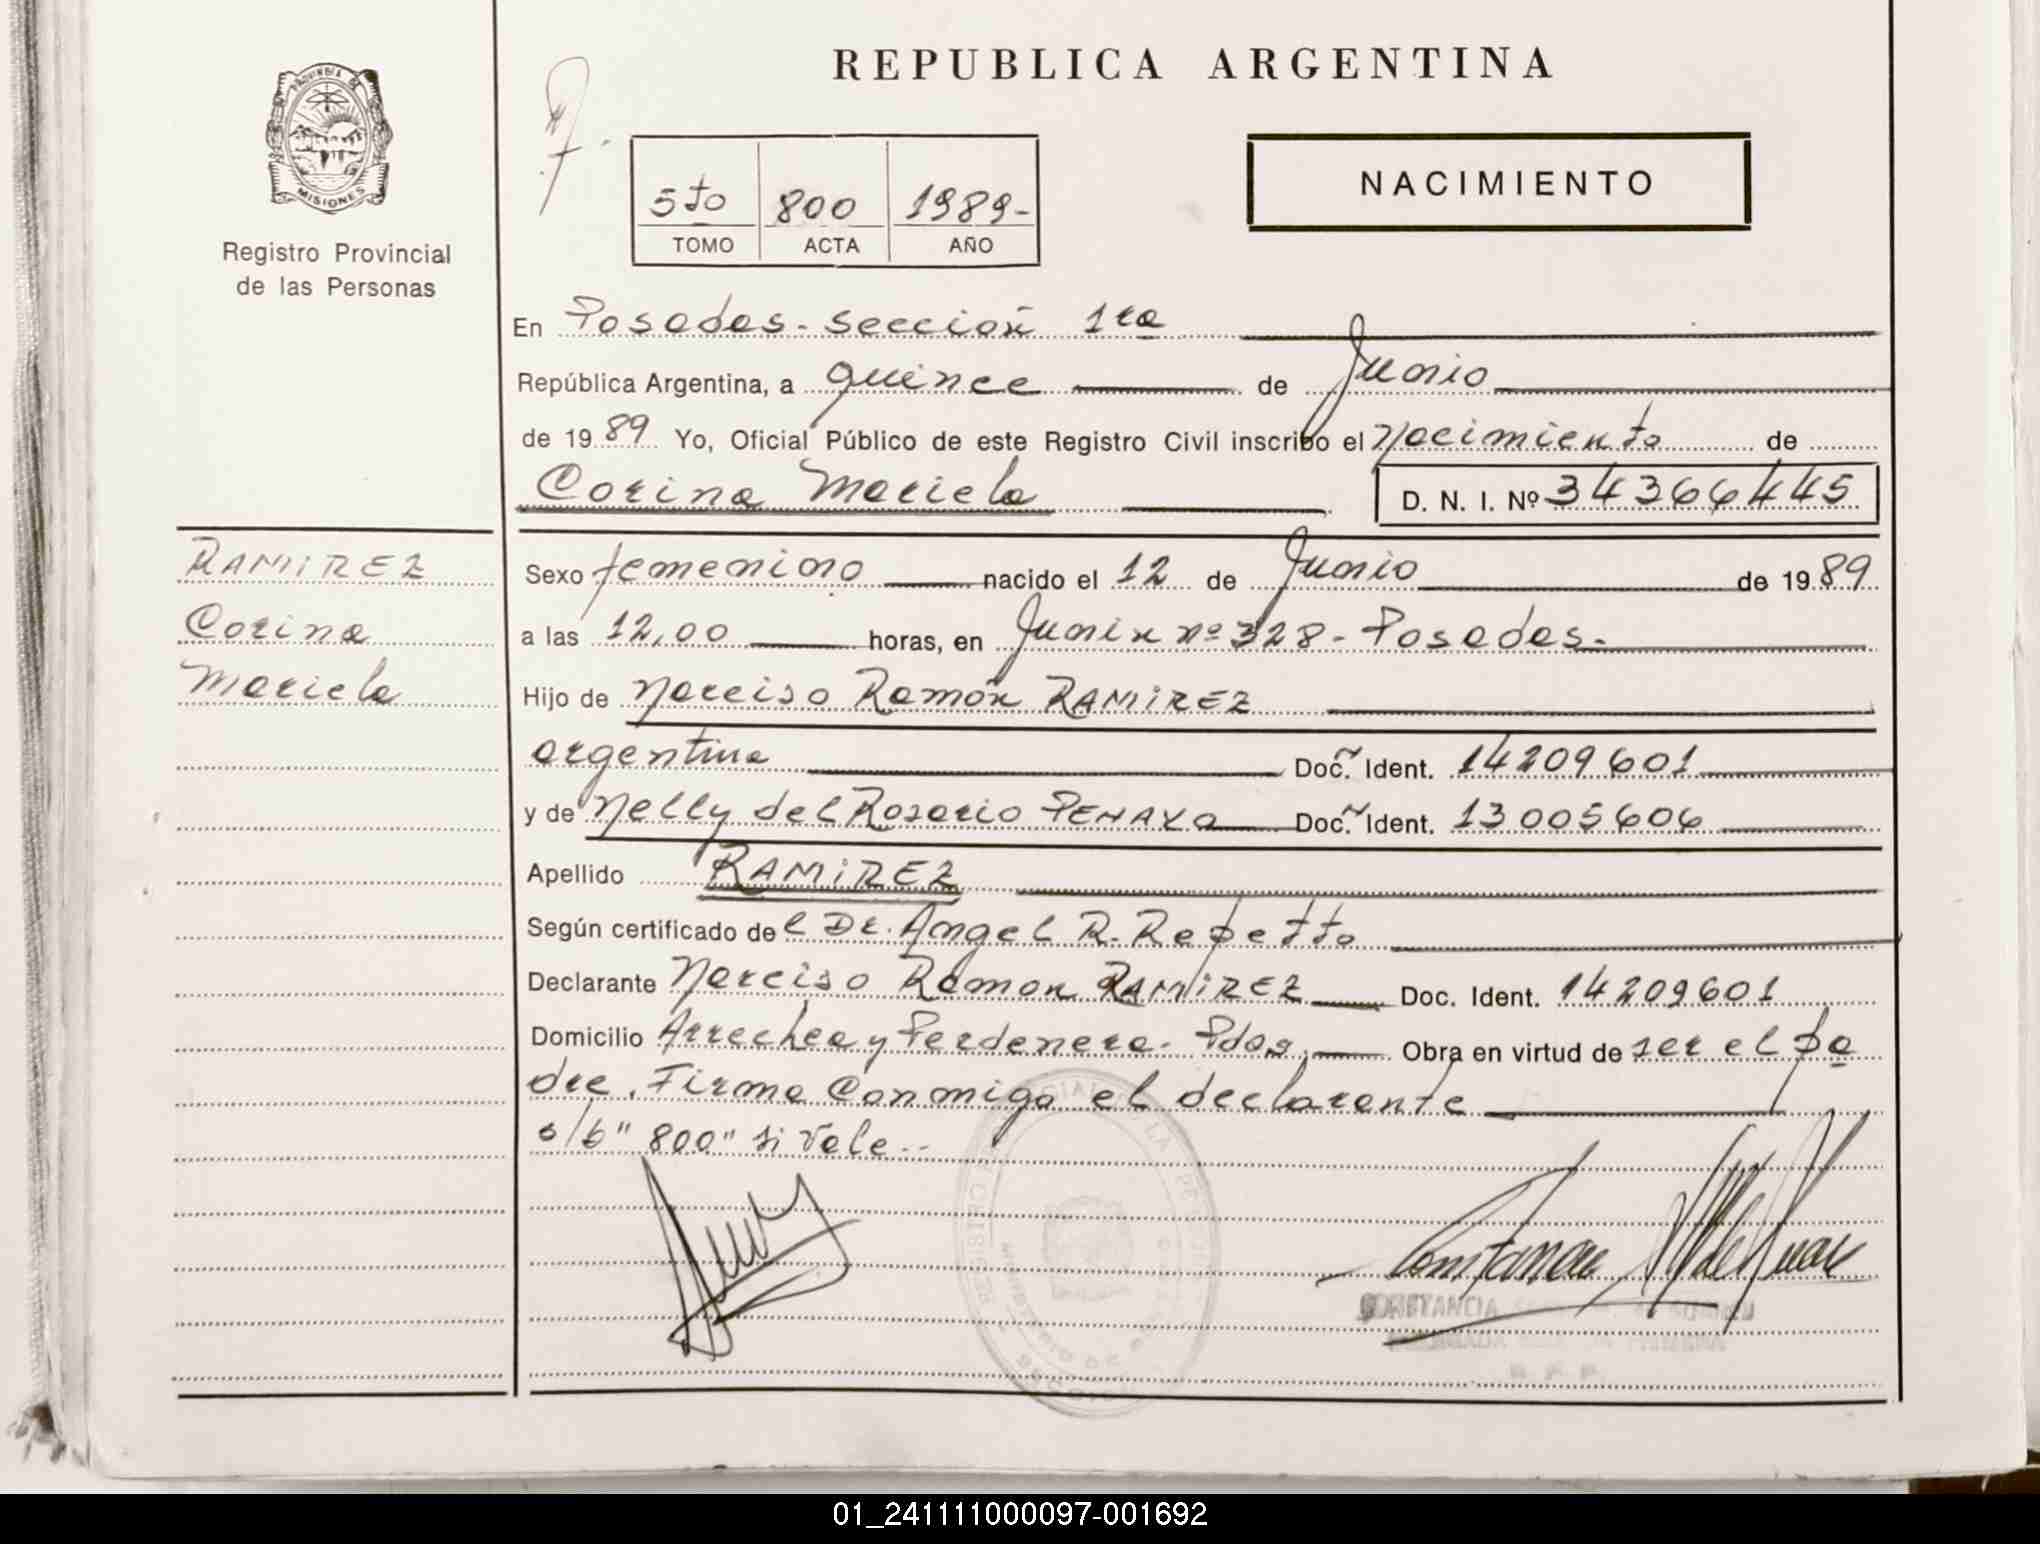 REPUBLICA ARGENTINA
PROVINCIA DE
MISIONES
Registro Provincial
de las Personas
5to 800 1989-
TOMO ACTA AÑO
NACIMIENTO
En Posadas - sección 1ra
República Argentina, a quince de Junio
de 1989 Yo, Oficial Público de este Registro Civil inscribo el Nacimiento de
Corina Mariela D. N. I. Nº 34366445
RAMIREZ
Corina
Mariela
Sexo femenino nacido el 12 de Junio de 1989
a las 12,00 horas, en Junin nº 328 - Posadas.
Hijo de Narciso Ramón RAMIREZ
argentina Doc. Ident. 14209601
y de Nelly del Rosario PENAYO Doc. Ident. 13005606
Apellido RAMIREZ
Según certificado del Dr. Angel R. Repetto
Declarante Narciso Ramon RAMIREZ Doc. Ident. 14209601
Domicilio Arrechea y Perdenera - Pdas, Obra en virtud de ser el pa
dre. Firma Conmigo el declarante
s/b "800" si vale.-
CONSTANCIA
01_241111000097-001692